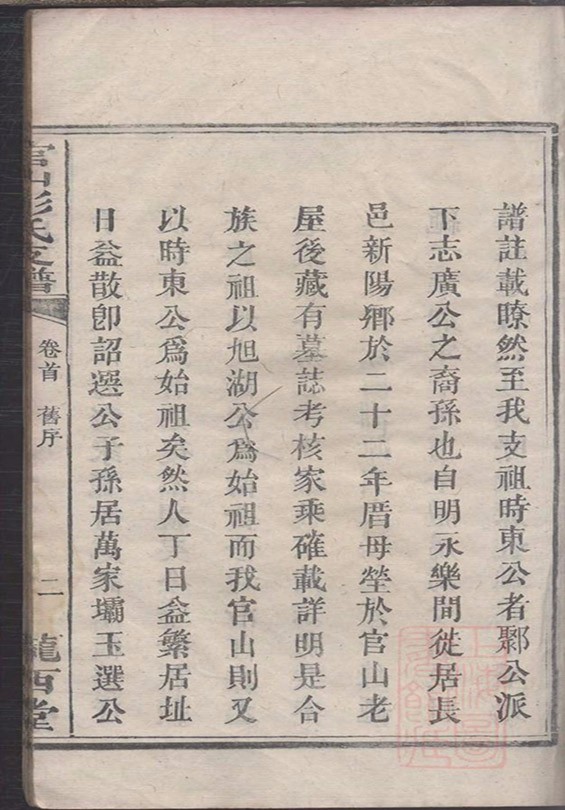 譜註載瞭然至我支祖時東公者鄢公派
下志廣公之裔孫也自明永樂間徙居長
邑新陽鄉於二十二年厝母塋於官山老
屋後藏有墓誌考核家乘確載詳明是合
族之祖以旭湖公爲始祖而我官山則又
以時東公爲始祖矣然人丁日益繁居址
日益散卽詔選公子孫居萬家壩玉選公
官山彭氏支譜
卷首 舊序
二
隴西堂